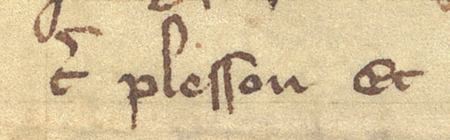 t᷑ plesson et